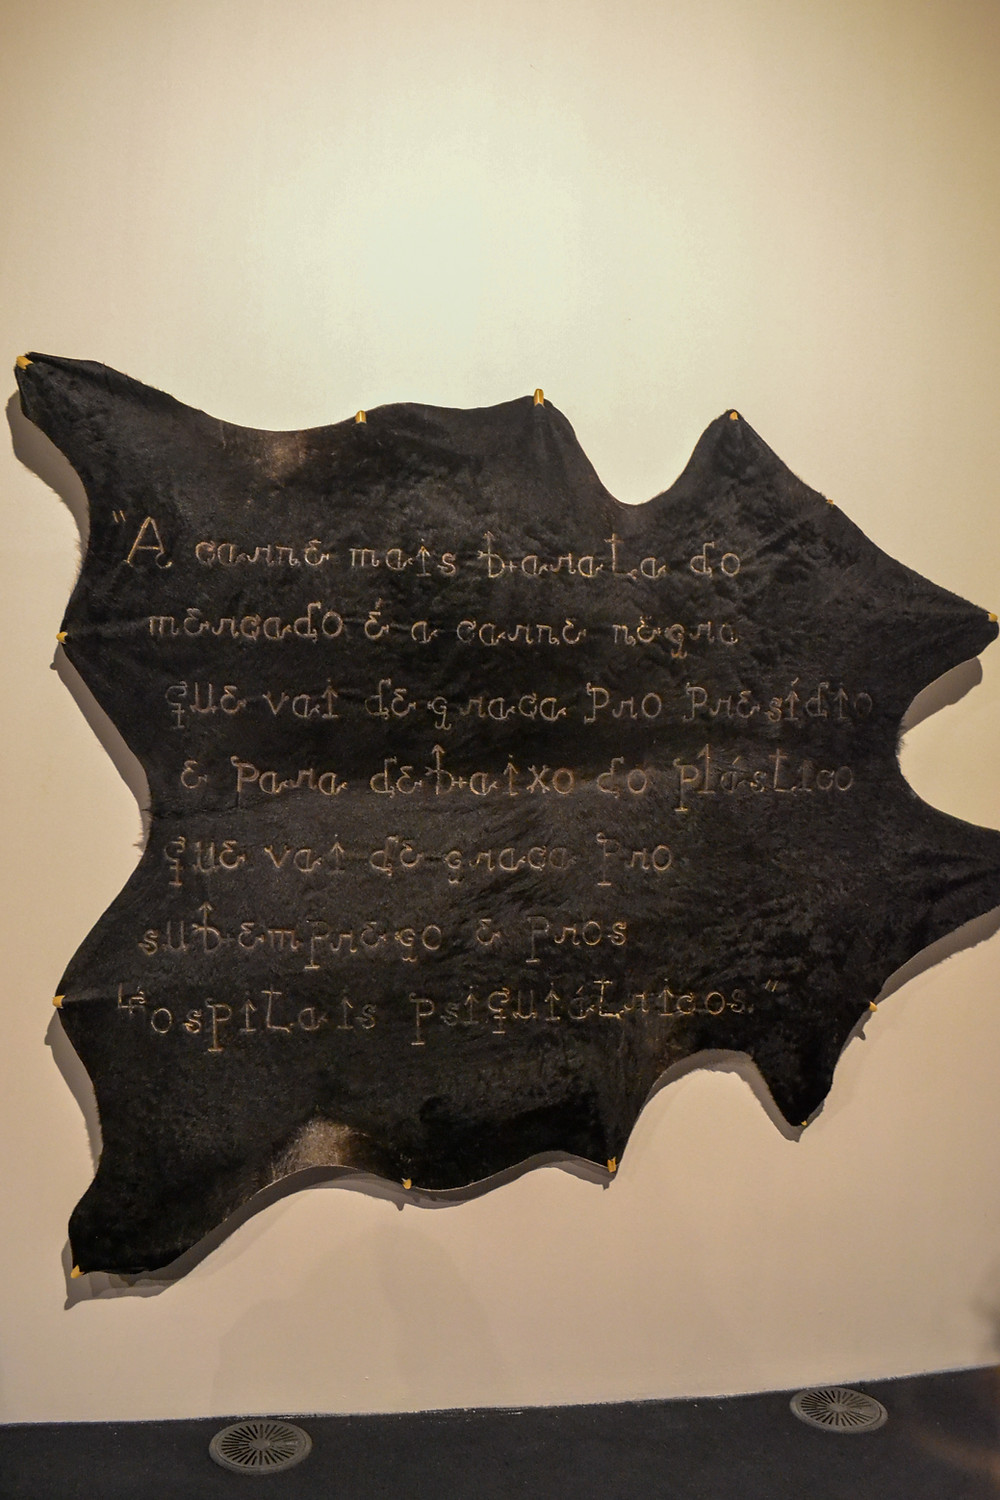 "A carne mais barata do
mercado é a carne negra
que vai de graca pro presídio
e para debaixo do plástico
que vai de graca pro
subemprego e pros
hospitais psiquiátricos."